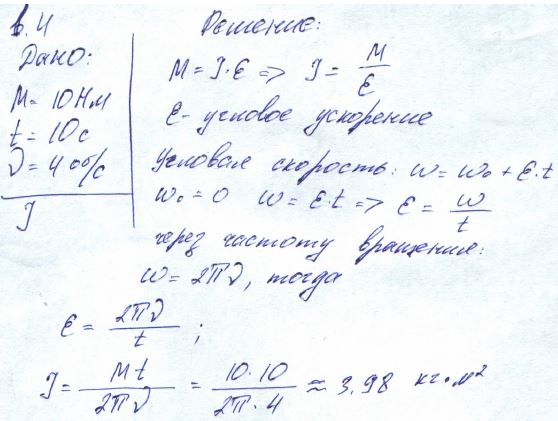 в. 4
Дано:
M = 10 Нм
t = 10 с
ν = 4 об/с
J
Решение:
M = J·ε => J = M/ε
ε - угловое ускорение
Угловая скорость: ω = ω₀ + ε·t
ω₀ = 0 ω = ε·t => ε = ω/t
через частоту вращения:
ω = 2πν, тогда
ε = 2πν/t ;
J = Mt/2πν = 10·10/2π·4 ≈ 3,98 кг·м²